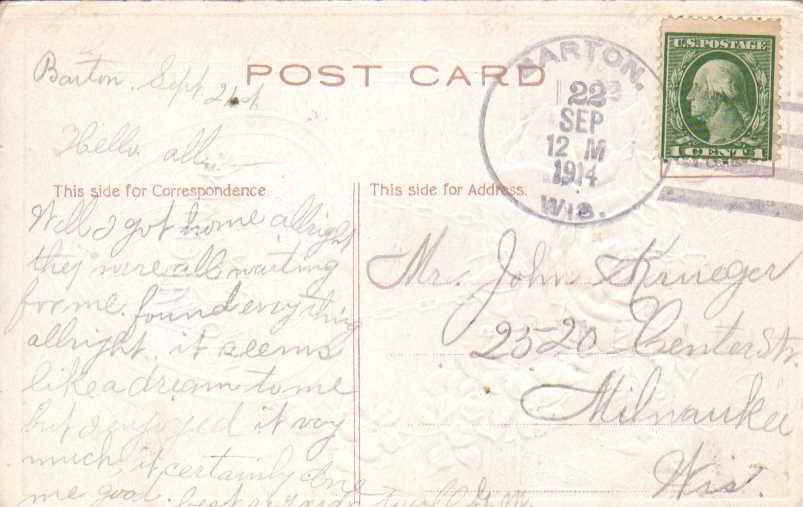 Barton, Sept 21st
POST CARD
BARTON.
22
SEP
12 M
1914
WIS.
U.S. POSTAGE
1 CENT 1
Hello all
This side for Correspondence
This side for Address.
Well I got home allright
they were all waiting
for me. found everything
allright. it seems
like a dream to me
but I enjoyed it very
much, it certainly done
me good. best regards to all
Mr. John Krueger
2520 Center Str.
Milwaukee
Wis.